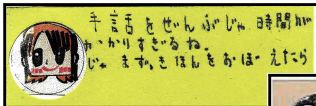 手話をぜんぶじゃ時間が
かかりすぎるね。
じゃ まず、きほんをおぼえたら